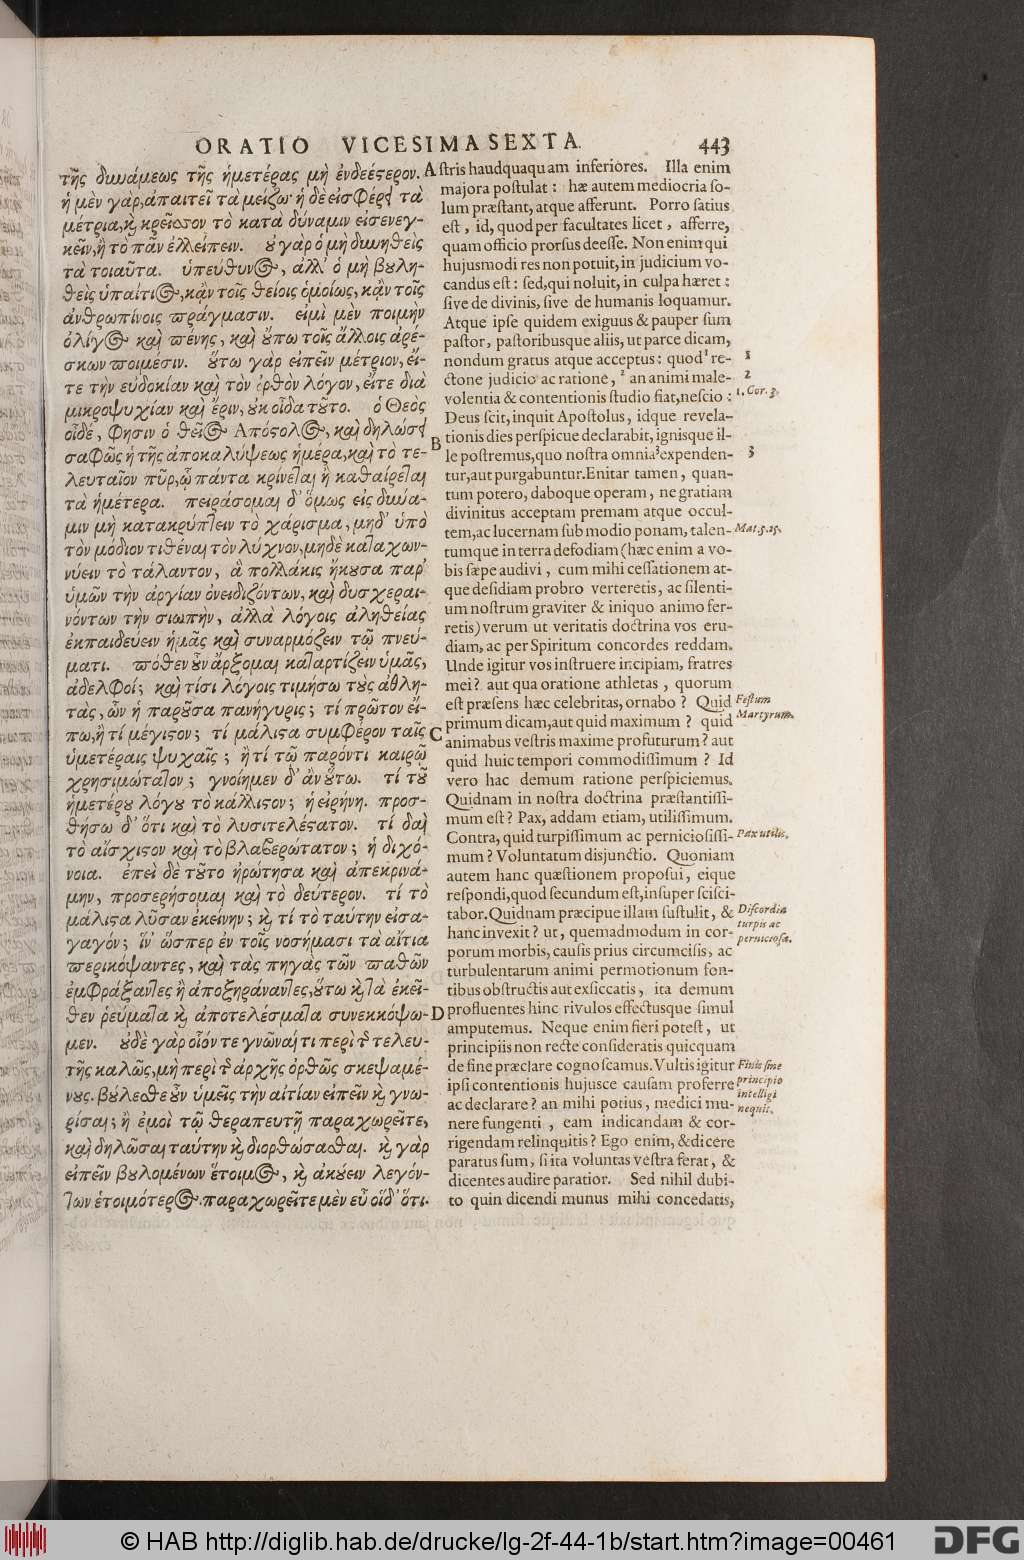 ORATIO VICESIMA SEXTA. 443
τῆς δυνάμεως τῆς ἡμετέρας μὴ ἐνδεέςερον.
ἡ μὲν γὰρ, ἀπαιτεῖ τὰ μείζω· ἡ δὲ εἰσφέρει τὰ
μέτρια, καὶ κρεῖσσον τὸ κατὰ δύναμιν εἰσενεγ-
κεῖν, ἢ τὸ πᾶν ἐλλείπειν. οὐ γὰρ ὁ μὴ δυνηθεὶς
τὰ τοιαῦτα. ὑπεύθυνος, ἀλλ' ὁ μὴ βουλη-
θεὶς ὑπαίτιος, κἂν τοῖς θείοις ὁμοίως, κἂν τοῖς
ἀνθρωπίνοις πράγμασιν. εἰμὶ μὲν ποιμὴν
ὀλίγος καὶ πένης, καὶ οὔπω τοῖς ἄλλοις ἀρέ-
σκων ποιμέσιν. οὕτω γὰρ εἰπεῖν μέτριον, εἴ-
τε τὴν εὐδοκίαν καὶ τὸν ὀρθὸν λόγον, εἴτε διὰ
μικροψυχίαν καὶ ἔριν, οὐκ οἶδα τοῦτο. ὁ Θεὸς
οἶδέ, φησιν ὁ θεῖος Απόςολος, καὶ δηλώσει
σαφῶς ἡ τῆς ἀποκαλύψεως ἡμέρα, καὶ τὸ τε-
λευταῖον πῦρ, ᾧ πάντα κρίνεται ἢ καθαίρεται
τὰ ἡμέτερα. πειράσομαι δ' ὅμως εἰς δύνα-
μιν μὴ κατακρύπτειν τὸ χάρισμα, μηδ' ὑπὸ
τὸν μόδιον τιθέναι τὸν λύχνον, μηδὲ καταχων-
νύειν τὸ τάλαντον, ἃ πολλάκις ἤκουσα παρ'
ὑμῶν τὴν ἀργίαν ὀνειδιζόντων, καὶ δυσχεραι-
νόντων τὴν σιωπὴν, ἀλλὰ λόγοις ἀληθείας
ἐκπαιδεύειν ἡμᾶς καὶ συναρμόζειν τῷ πνεύ-
ματι. πόθεν οὖν ἄρξομαι καταρτίζειν ὑμᾶς,
ἀδελφοί; καὶ τίσι λόγοις τιμήσω τοὺς ἀθλη-
τὰς, ὧν ἡ παροῦσα πανήγυρις; τί πρῶτον εἴ-
πω, ἢ τί μέγιςον; τί μάλιςα συμφέρον ταῖς
ὑμετέραις ψυχαῖς; ἢ τί τῷ παρόντι καιρῷ
χρησιμώτατον; γνοίημεν δ' ἂν οὕτω. τί τοῦ
ἡμετέρου λόγου τὸ κάλλιςον; ἡ εἰρήνη. προσ-
θήσω δ' ὅτι καὶ τὸ λυσιτελέςατον. τί δαὶ
τὸ αἴσχιςον καὶ τὸ βλαβερώτατον; ἡ διχό-
νοια. ἐπεὶ δὲ τοῦτο ἠρώτησα καὶ ἀπεκρινά-
μην, προσερήσομαι καὶ τὸ δεύτερον. τί τὸ
μάλιςα λῦσαν ἐκείνην; καὶ τί τὸ ταύτην εἰσα-
γαγόν; ἵν' ὥσπερ ἐν τοῖς νοσήμασι τὰ αἴτια
περικόψαντες, καὶ τὰς πηγὰς τῶν παθῶν
ἐμφράξαντες ἢ ἀποξηράναντες, οὕτω καὶ τὰ ἐκεῖ-
θεν ῥεύματα καὶ ἀποτελέσματα συνεκκόψω-
μεν. οὐδὲ γὰρ οἷόν τε γνῶναί τι περὶ τῆς τελευ-
τῆς καλῶς, μὴ περὶ τῆς ἀρχῆς ὀρθῶς σκεψαμέ-
νους. βούλεσθε οὖν ὑμεῖς τὴν αἰτίαν εἰπεῖν καὶ γνω-
ρίσαι; ἢ ἐμοὶ τῷ θεραπευτῇ παραχωρεῖτε,
καὶ δηλῶσαι ταύτην καὶ διορθώσασθαι. καὶ γὰρ
εἰπεῖν βουλομένων ἕτοιμος, καὶ ἀκούειν λεγόν-
των ἑτοιμότερος. παραχωρεῖτε μὲν εὖ οἶδ' ὅτι.
A
B
C
D
stris haudquaquam inferiores. Illa enim
majora postulat: hæ autem mediocria so-
lum præstant, atque afferunt. Porro satius
est, id, quod per facultates licet, afferre,
quam officio prorsus deesse. Non enim qui
hujusmodi res non potuit, in judicium vo-
candus est: sed, qui noluit, in culpa hæret:
sive de divinis, sive de humanis loquamur.
Atque ipse quidem exiguus & pauper sum
pastor, pastoribusque aliis, ut parce dicam,
nondum gratus atque acceptus: quod 1 re-
ctone judicio ac ratione, 2 an animi male-
volentia & contentionis studio fiat, nescio:
Deus scit, inquit Apostolus, idque revela-
tionis dies perspicue declarabit, ignisque il-
le postremus, quo nostra omnia 3 expenden-
tur, aut purgabuntur. Enitar tamen, quan-
tum potero, daboque operam, ne gratiam
divinitus acceptam premam atque occul-
tem, ac lucernam sub modio ponam, talen-
tumque in terra defodiam (hæc enim a vo-
bis sæpe audivi, cum mihi cessationem at-
que desidiam probro verteretis, ac silenti-
um nostrum graviter & iniquo animo fer-
retis) verum ut veritatis doctrina vos eru-
diam, ac per Spiritum concordes reddam.
Unde igitur vos instruere incipiam, fratres
mei? aut qua oratione athletas, quorum
est præsens hæc celebritas, ornabo? Quid
primum dicam, aut quid maximum? quid
animabus vestris maxime profuturum? aut
quid huic tempori commodissimum? Id
vero hac demum ratione perspiciemus.
Quidnam in nostra doctrina præstantissi-
mum est? Pax, addam etiam, utilissimum.
Contra, quid turpissimum ac perniciosissi-
mum? Voluntatum disjunctio. Quoniam
autem hanc quæstionem proposui, eique
respondi, quod secundum est, insuper scisci-
tabor. Quidnam præcipue illam sustulit, &
hanc invexit? ut, quemadmodum in cor-
porum morbis, causis prius circumcisis, ac
turbulentarum animi permotionum fon-
tibus obstructis aut exsiccatis, ita demum
profluentes hinc rivulos effectusque simul
amputemus. Neque enim fieri potest, ut
principiis non recte consideratis quicquam
de fine præclare cognoscamus. Vultis igitur
ipsi contentionis hujusce causam proferre
ac declarare? an mihi potius, medici mu-
nere fungenti, eam indicandam & cor-
rigendam relinquitis? Ego enim, & dicere
paratus sum, si ita voluntas vestra ferat, &
dicentes audire paratior. Sed nihil dubi-
to quin dicendi munus mihi concedatis,
1
2
1. Cor. 3.
3
Mat. 5. 25.
Festum
Martyrum.
Pax utilis.
Discordia
turpis ac
perniciosa.
Finis sine
principio
intelligi
nequit.
© HAB http://diglib.hab.de/drucke/lg-2f-44-1b/start.htm?image=00461
DFG